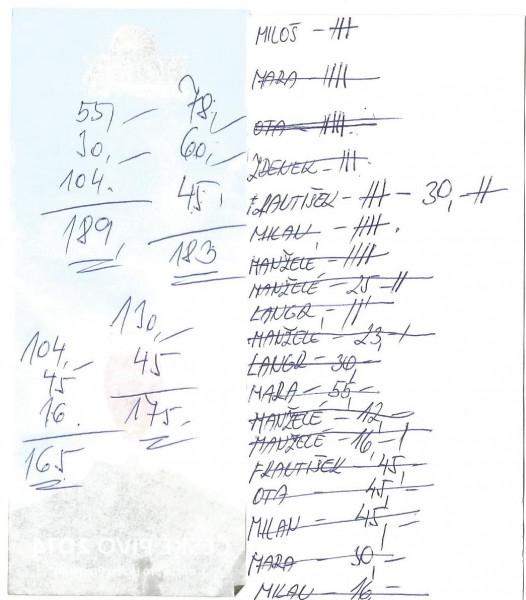 55,-
30,-
104.
189,
78,-
60,-
45,
183
104,-
45
16.
165
130,-
45
175,-
MILOŠ - |||
MARA - ||||
OTA - ||||.
ZDENEK - |||
FRANTIŠEK - ||| - 30,- ||
MILAN, - ||||.
MANŽELÉ - ||||
MANŽELÉ - 25 - ||
LANGR, - |||
MANŽELÉ - 23,- |
LANGR - 30,-
MARA - 55,-
MANŽELÉ - 12,-
MANŽELÉ - 16,- |
FRANTIŠEK 45,-
OTA - 45,-
MILAN - 45,-
MARA - 30,-
MILAN - 16,-